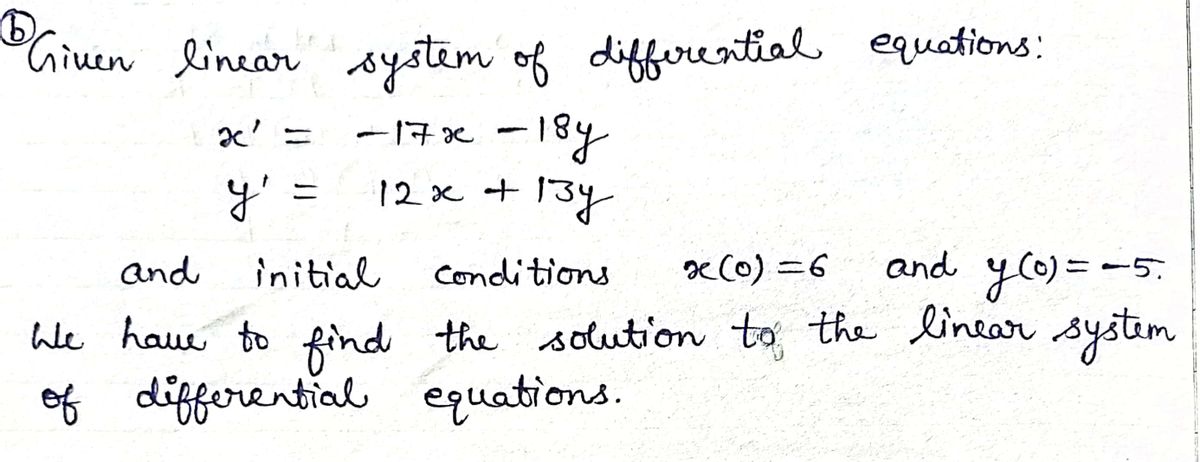 ⓑ Given linear system of differential equations:
x' = -17x -18y
y' = 12x + 13y
and initial conditions x(0) = 6 and y(0) = -5.
We have to find the solution to the linear system
of differential equations.